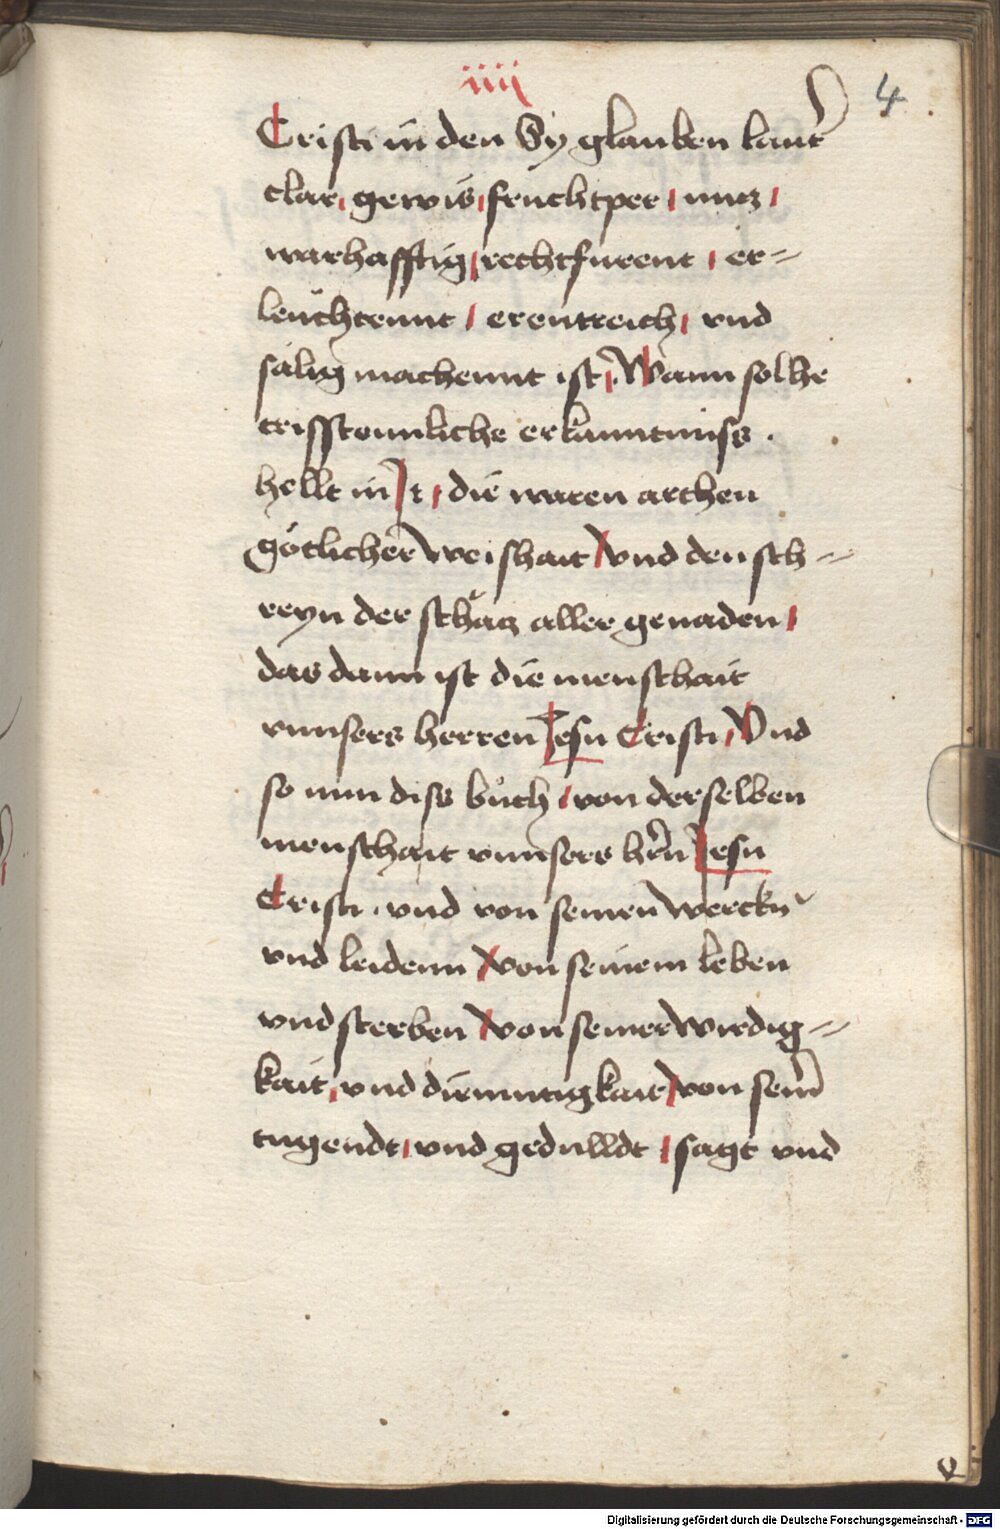 iiij
4
Cristi in den Sy glauben laut̄
clar, gewis, fruchtper, nucz,
warhafftig, rechtfurent, er=
leüchtennt, erentreich, vnd
sälig machennt ist, Wann solhe
cristtennliche erkanntnuss.
hellt in I t, die waren archen
götlicher weishait, vnd den sch=
reyn der schäcz aller genaden,
das dann ist die menschait
vnnsers herren Jesu Cristi, Vnd
so nun diss bůch, von derselben
menschait vnnsers hr̄n Jesu
Cristi. vnd von seinen werckn̄
vnd leidenn, von seinem leben
vnd sterben, von seiner wirdig=
kait, vnd diemutigkait, von sein̄
tugendt, vnd gedulldt, sagt vnd
Digitalisierung gefördert durch die Deutsche Forschungsgemeinschaft - DFG